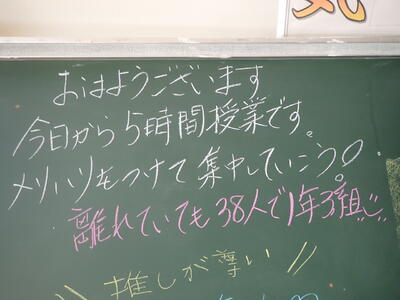 おはようございます
今日から5時間授業です。
メリハリをつけて集中していこう!
離れていても38人で1年3組
推しが尊い